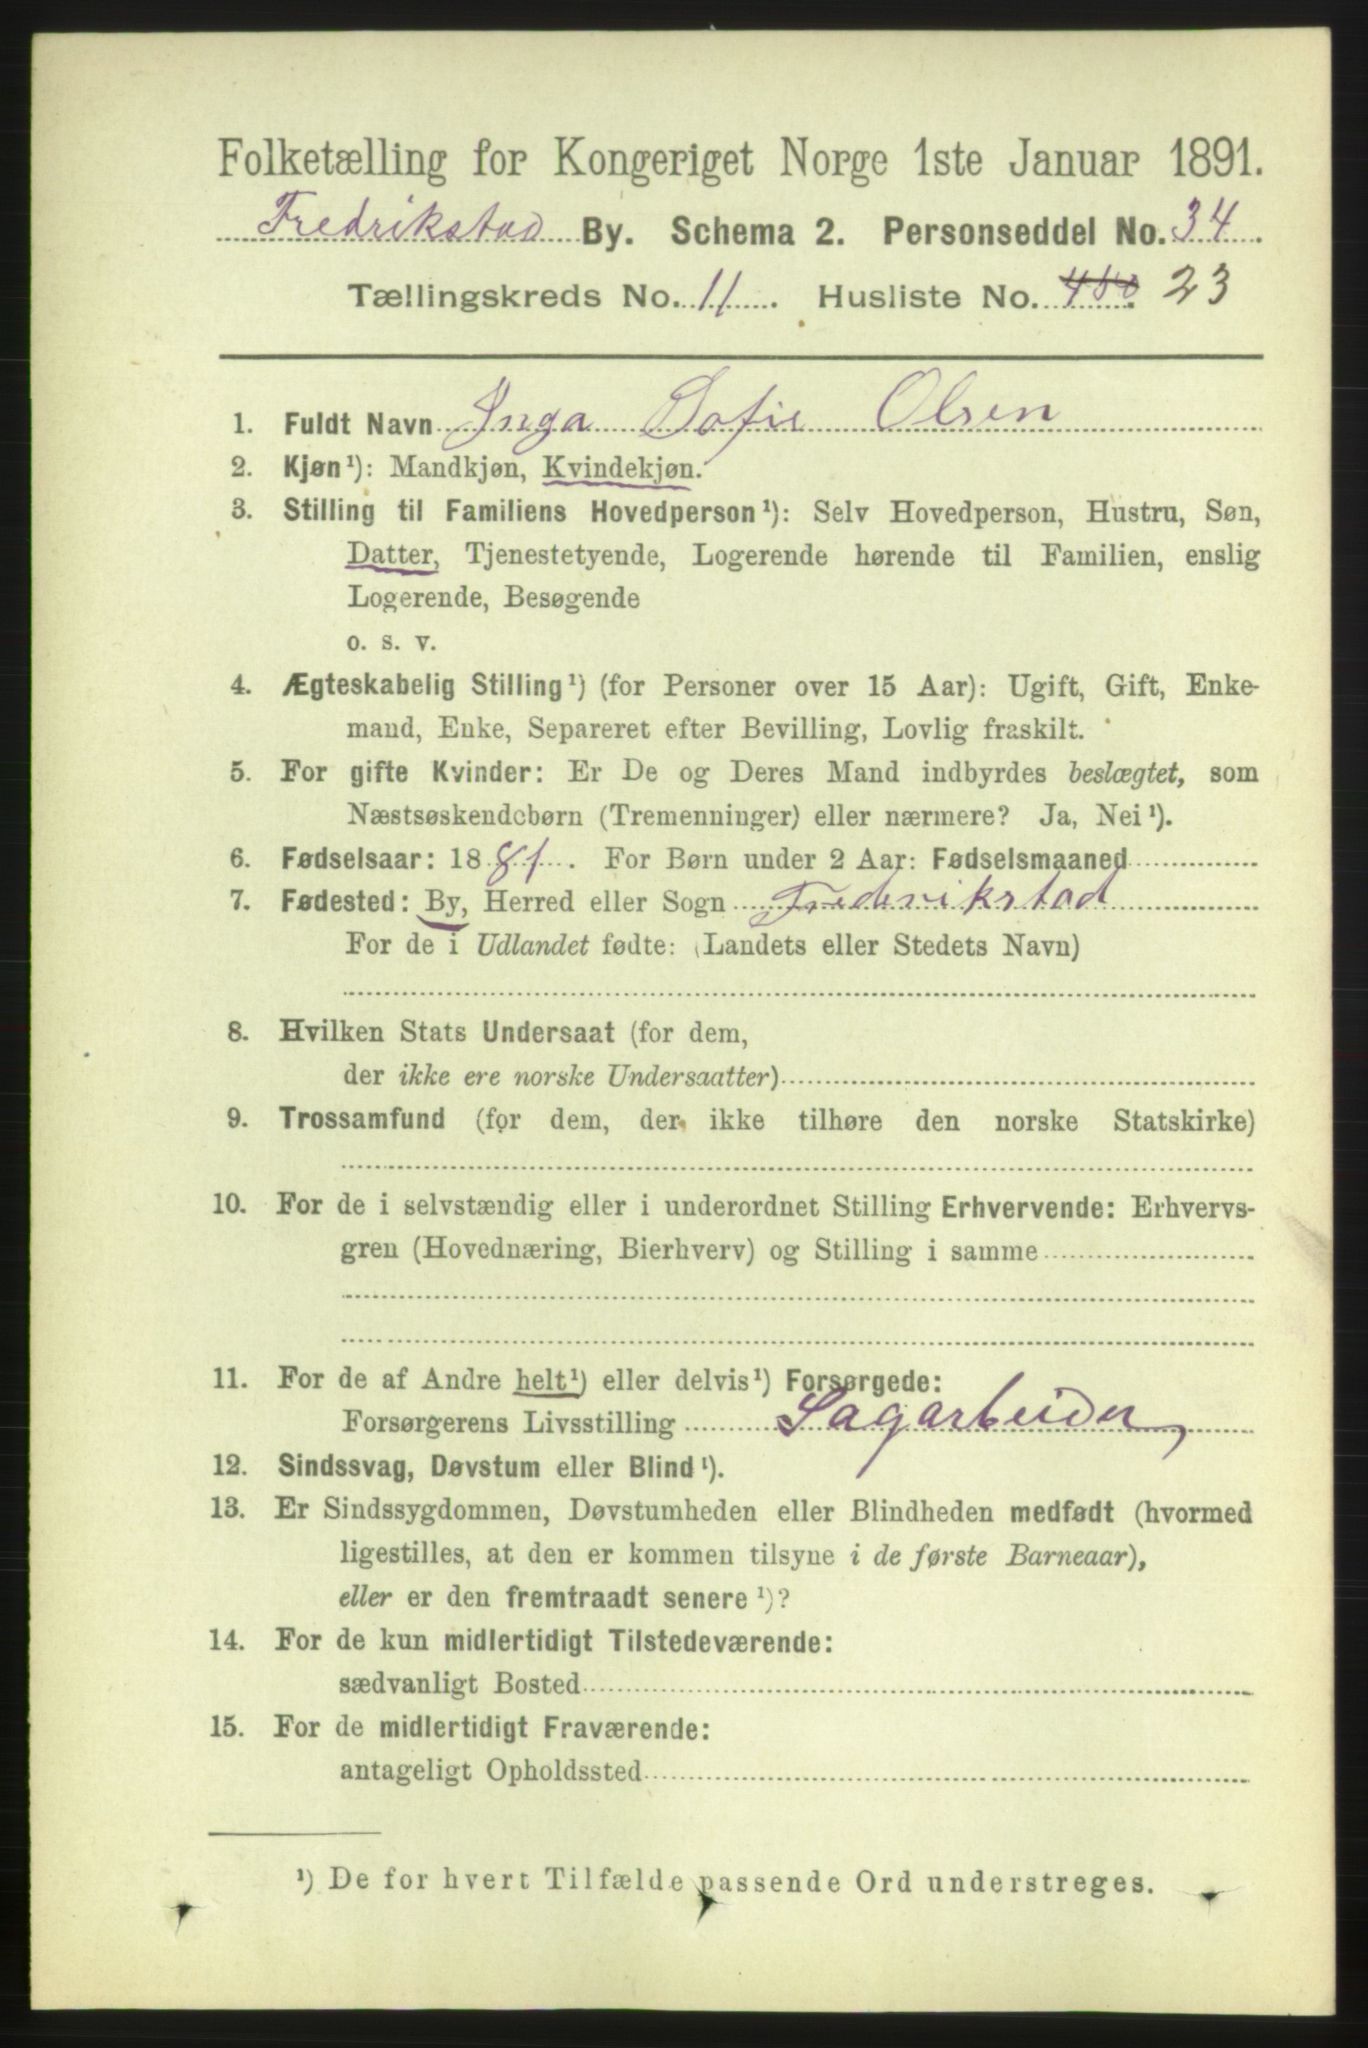 Folketælling for Kongeriget Norge 1ste Januar 1891.
Fredrikstad By. Schema 2. Personseddel No. 34.
Tællingskreds No. 11. Husliste No. 23
1. Fuldt Navn Inga Sofie Olsen
2. Kjøn¹): Mandkjøn, Kvindekjøn.
3. Stilling til Familiens Hovedperson¹): Selv Hovedperson, Hustru, Søn,
Datter, Tjenestetyende, Logerende hørende til Familien, enslig
Logerende, Besøgende
o. s. v.
4. Ægteskabelig Stilling¹) (for Personer over 15 Aar): Ugift, Gift, Enke-
mand, Enke, Separeret efter Bevilling, Lovlig fraskilt.
5. For gifte Kvinder: Er De og Deres Mand indbyrdes beslægtet, som
Næstsøskendebørn (Tremenninger) eller nærmere? Ja, Nei¹).
6. Fødselsaar: 1881. For Børn under 2 Aar: Fødselsmaaned
7. Fødested: By, Herred eller Sogn Frederikstad
For de i Udlandet fødte: (Landets eller Stedets Navn)
8. Hvilken Stats Undersaat (for dem,
der ikke ere norske Undersaatter)
9. Trossamfund (for dem, der ikke tilhøre den norske Statskirke)
10. For de i selvstændig eller i underordnet Stilling Erhvervende: Erhvervs-
gren (Hovednæring, Bierhverv) og Stilling i samme
11. For de af Andre helt¹) eller delvis¹) Forsørgede:
Forsørgerens Livsstilling Sagarbeider
12. Sindssvag, Døvstum eller Blind¹).
13. Er Sindssygdommen, Døvstumheden eller Blindheden medfødt (hvormed
ligestilles, at den er kommen tilsyne i de første Barneaar),
eller er den fremtraadt senere¹)?
14. For de kun midlertidigt Tilstedeværende:
sædvanligt Bosted
15. For de midlertidigt Fraværende:
antageligt Opholdssted
¹) De for hvert Tilfælde passende Ord understreges.